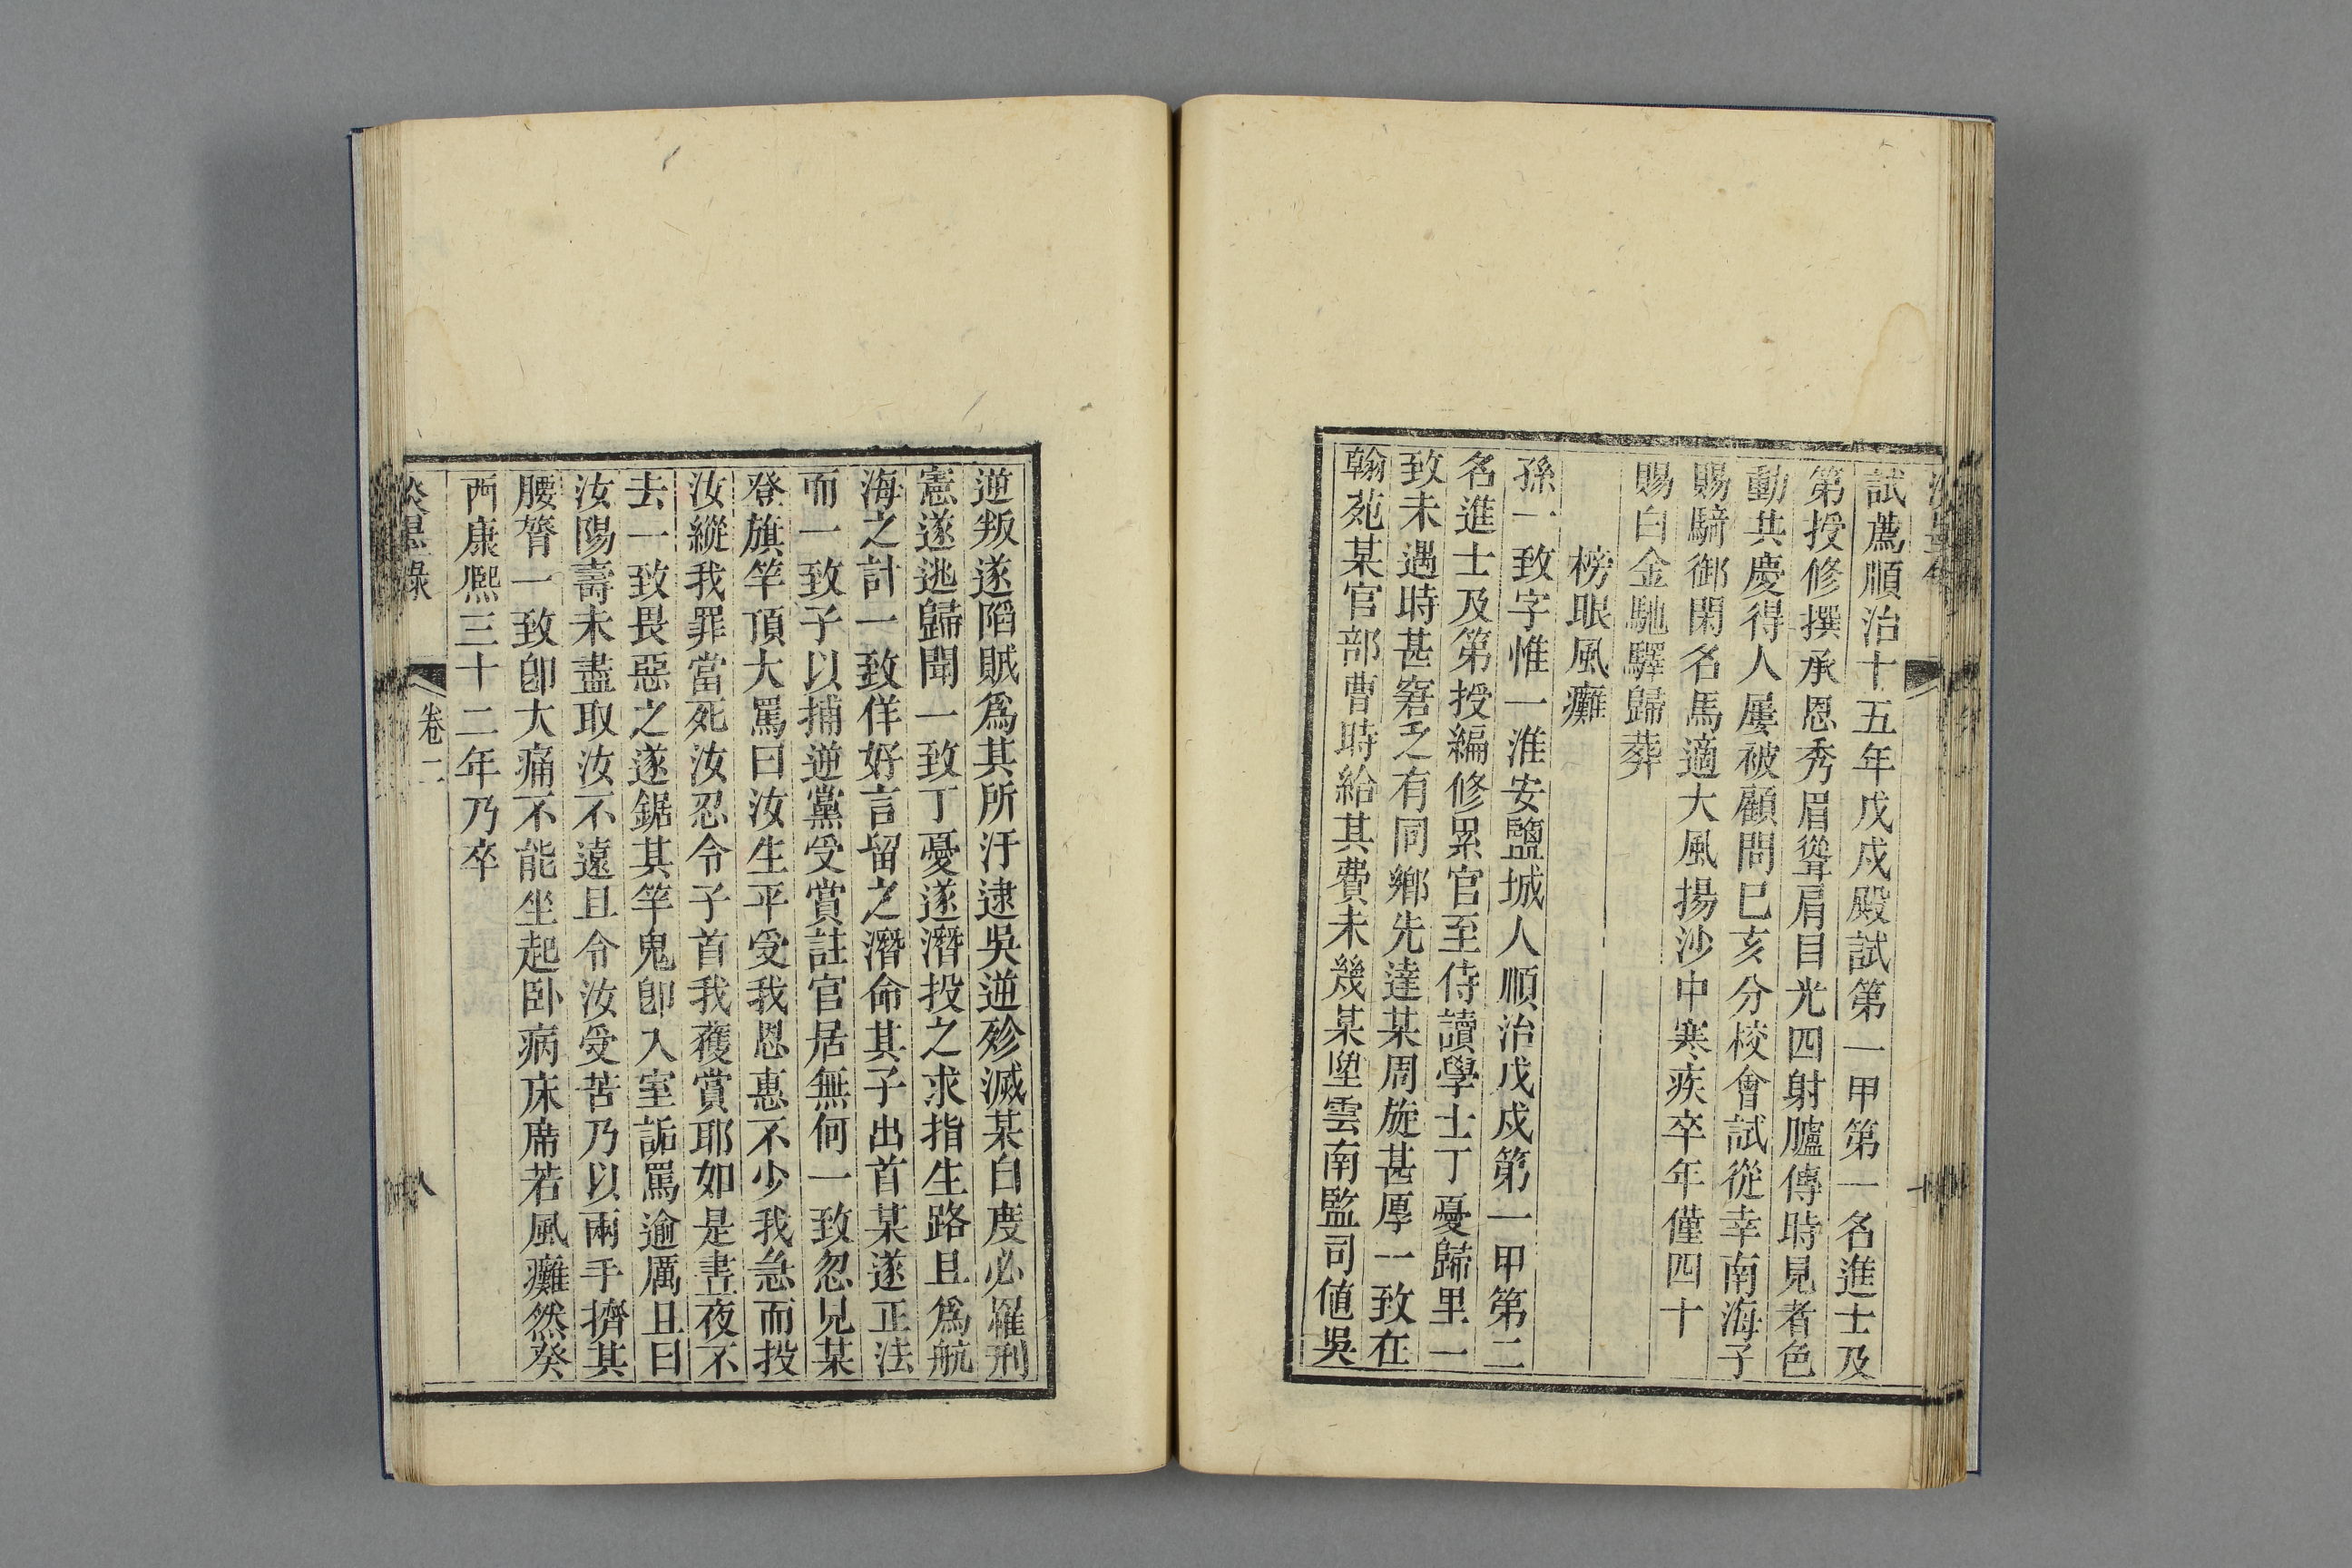 試薦順治十五年戊戌殿試第一甲第一名進士及
第授修撰承恩秀眉聳肩目光四射臚傳時見者色
動共慶得人屢被顧問己亥分校會試從幸南海子
賜騎御閑名馬適大風揚沙中寒疾卒年僅四十
賜白金馳驛歸葬
榜眼風癱
孫一致字惟一淮安鹽城人順治戊戌第一甲第二
名進士及第授編修累官至侍讀學士丁憂歸里一
致未遇時甚窘乏有同鄉先達某周旋甚厚一致在
翰苑某官部曹時給其費未幾某墜雲南監司値吳
逆叛遂陷賊爲其所汙逮吳逆殄滅某自度必罹刑
憲遂逃歸聞一致丁憂遂潛投之求指生路且爲航
海之計一致佯好言留之潛命其子出首某遂正法
而一致子以捕逆黨受賞註官居無何一致忽見某
登旗竿頂大罵曰汝生平受我恩惠不少我急而投
汝縱我罪當死汝忍令子首我獲賞耶如是晝夜不
去一致畏惡之遂鋸其竿鬼卽入室詬罵逾厲且曰
汝陽壽未盡取汝不遠且令汝受苦乃以兩手擠其
腰膂一致卽大痛不能坐起卧病床席若風癱然癸
酉康熙三十二年乃卒
卷二
八